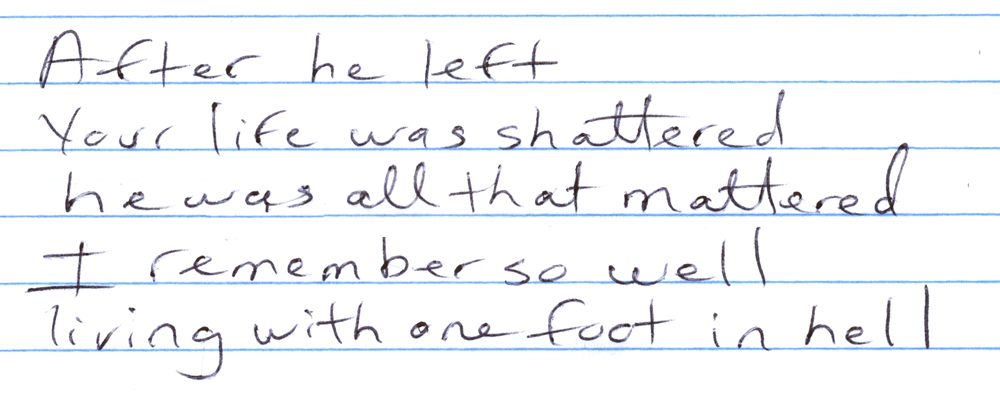 After he left
Your life was shattered
he was all that mattered
I remember so well
living with one foot in hell